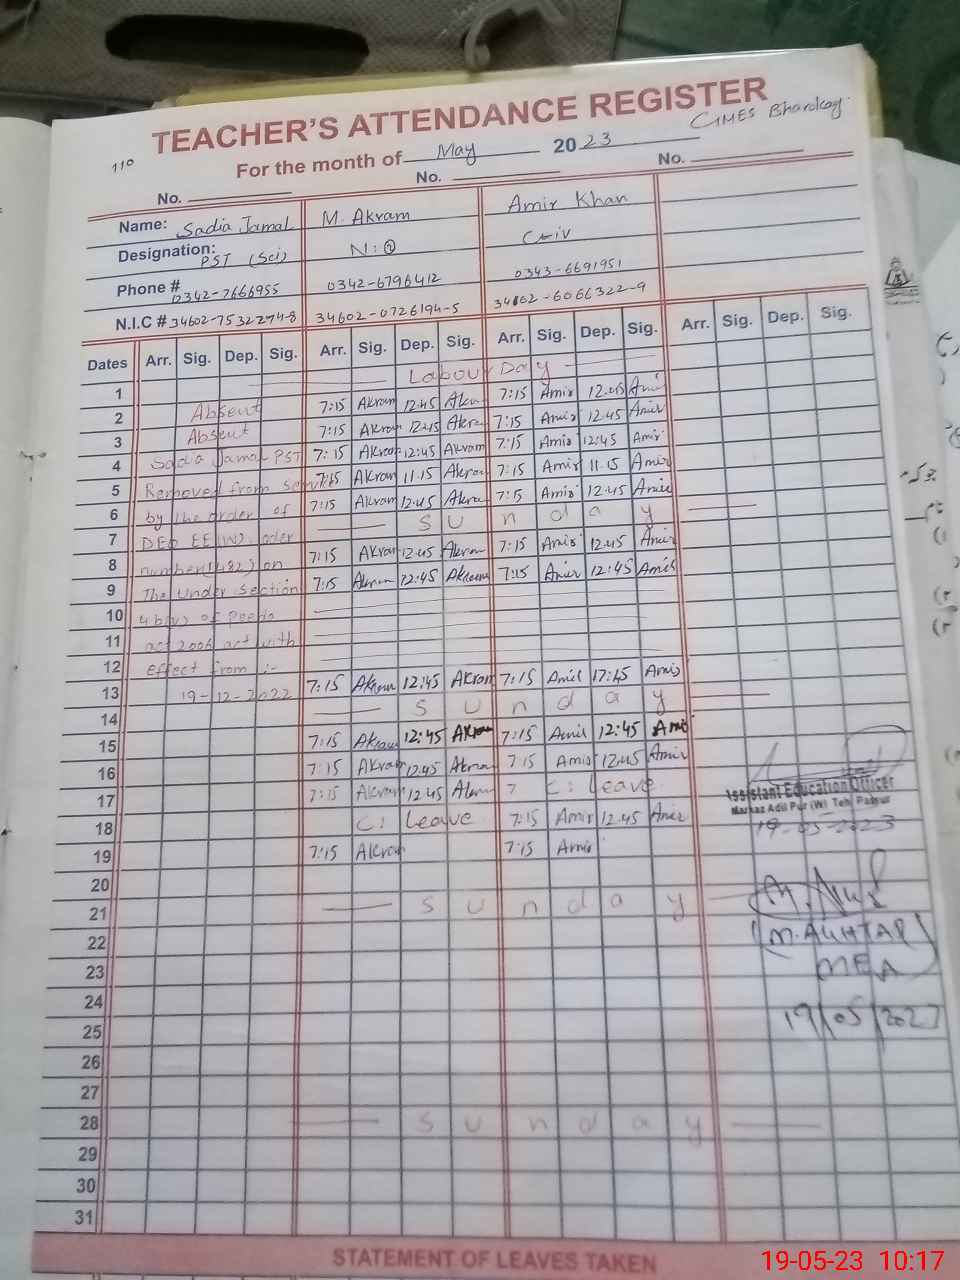 TEACHER'S ATTENDANCE REGISTER
110 For the month of May 2023
No. No. No.
Name: Sadia Jamal M. Akram Amir Khan
Designation: PST (Sci) N:Q C-iv
Phone # 0342-7666955 0342-6796412 0343-6691951
N.I.C # 34602-7532274-8 34602-0726194-5 34602-6066322-9
Dates Arr. Sig. Dep. Sig. Arr. Sig. Dep. Sig. Arr. Sig. Dep. Sig. Arr. Sig. Dep. Sig.
1 Labour Day
2 Absent 7:15 Akram 12:45 Akram 7:15 Amir 12:45 Amir
3 Absent 7:15 Akram 12:45 Akram 7:15 Amir 12:45 Amir
4 Sadia Jamal PST 7:15 Akram 12:45 Akram 7:15 Amir 12:45 Amir
5 Removed from Service 7:15 Akram 11.15 Akram 7:15 Amir 11.15 Amir
6 by the order of 7:15 Akram 12:45 Akram 7:5 Amir 12:45 Amir
7 DEO EE(W). oder Sunday
8 number(482) on 7:15 Akram 12:45 Akram 7:15 Amir 12:45 Amir
9 The under Section 7:15 Akram 12:45 Akram 7:15 Amir 12:45 Amir
10 of Peeda
11 act 2006 act with
12 effect from :-
13 19-12-2022 7:15 Akram 12:45 Akram 7:15 Amir 17:45 Amir
14 Sunday
15 7:15 Akram 12:45 Akram 7:15 Amir 12:45 Amir
16 7:15 Akram 12:45 Akram 7:15 Amir 12:45 Amir
17 7:15 Akram 12:45 Akram 7 C: Leave
18 C: Leave 7:15 Amir 12:45 Amir
19 7:15 Akram 7:15 Amir
20
21 Sunday
22
23
24
25
26
27
28 Sunday
29
30
31
Assistant Education Officer
Markaz Adil Pur (W) Teh: Pasrur
19-05-2023
(M. AKHTAR)
MEA
19/05/2023
STATEMENT OF LEAVES TAKEN
19-05-23 10:17